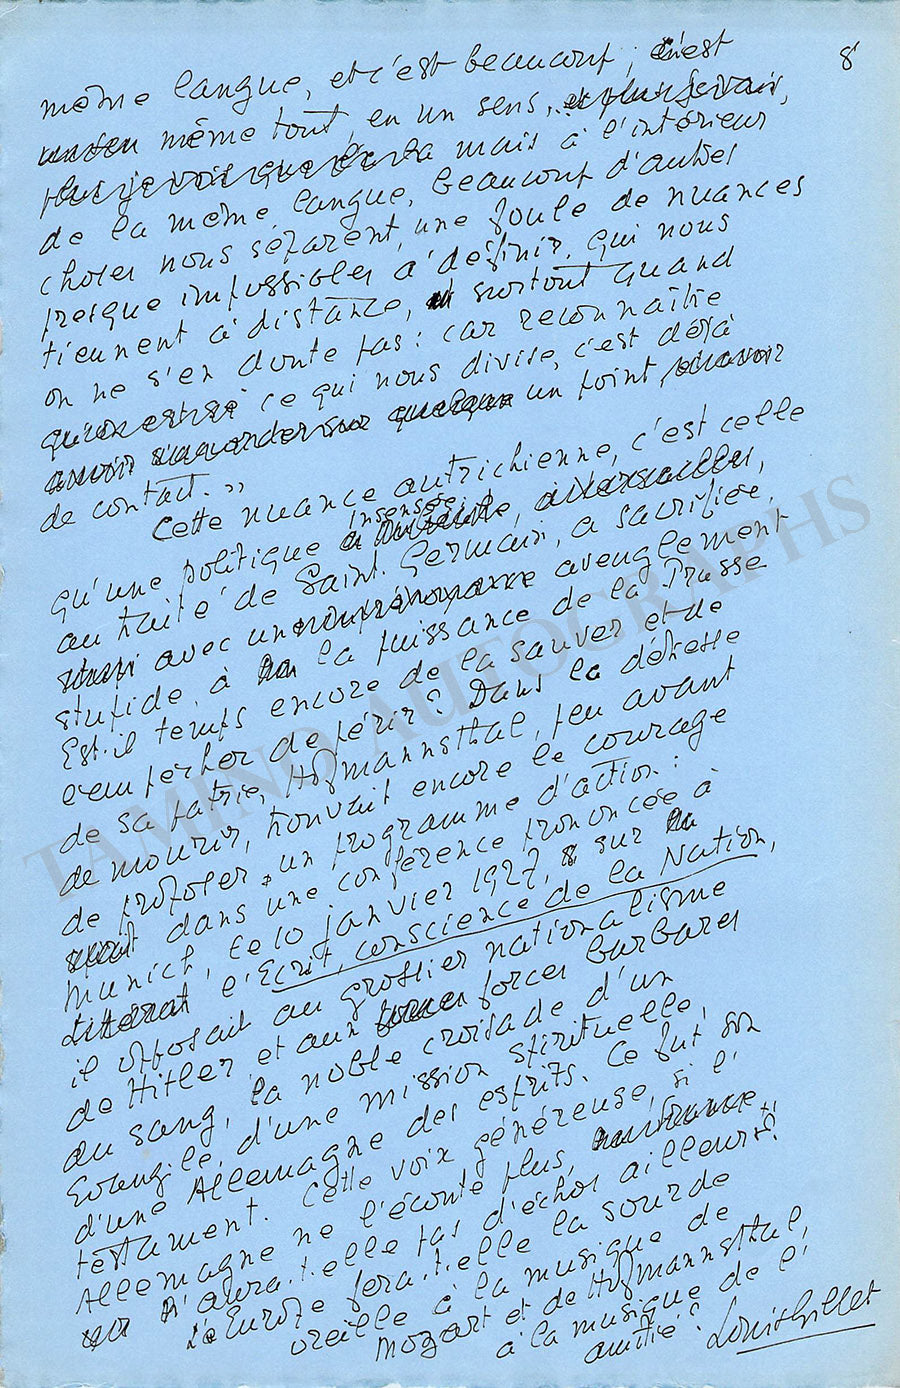 8
même langue, et c'est beaucoup ; c'est
même tout, en un sens, et plus je vais,
plus je vois que cela mais à l'intérieur
de la même langue, beaucoup d'autres
choses nous séparent, une foule de nuances
presque impossibles à définir, qui nous
tiennent à distance, et surtout quand
on ne s'en doute pas : car reconnaître
ce qui nous divise, c'est déjà
avoir un point
de contact. »
Cette nuance autrichienne, c'est celle
insensée
qu'une politique
au traité de Saint-Germain, a sacrifiée,
avec un aveuglement
stupide, à la puissance de la Prusse
Est-il temps encore de la sauver et de
l'empêcher de périr ? Dans la détresse
de sa patrie, Hofmannsthal, peu avant
de mourir, trouvait encore le courage
de proposer un programme d'action :
dans une conférence prononcée à
Munich, le 10 janvier 1927, sur
l'Ecrit, conscience de la Nation,
il opposait au grossier nationalisme
de Hitler, et aux forces barbares
du sang, la noble croisade d'un
Evangile, d'une mission spirituelle,
d'une Allemagne des esprits. Ce fut son
testament. Cette voix généreuse, si l'
Allemagne ne l'écoute plus,
n'aura-t-elle pas d'échos ailleurs ?
L'Europe fera-t-elle la sourde
oreille à la musique de
Mozart et de Hofmannsthal,
à la musique de l'
amitié ?
Louis Gillet
TAMINO AUTOGRAPHS